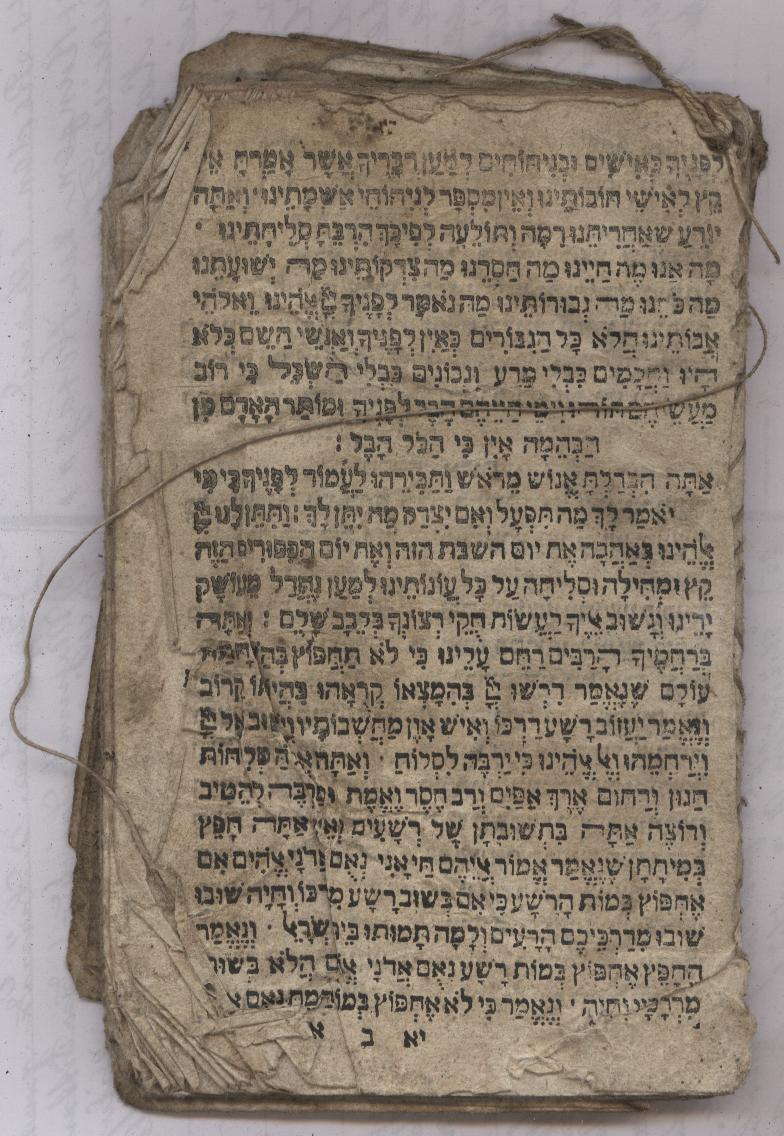 לְפָנֶיךָ כְּאִישִׁים וּכְנִיחוֹחִים לְמַעַן דְּבָרֶיךָ אֲשֶׁר אָמַרְתָּ אֵין
קֵץ לְאִישֵׁי חוֹבוֹתֵינוּ וְאֵין מִסְפָּר לְנִיחוֹחֵי אַשְׁמָתֵינוּ · וְאַתָּה
יוֹדֵעַ שֶׁאַחֲרִיתֵנוּ רִמָּה וְתוֹלֵעָה לְפִיכָךְ הִרְבֵּיתָ סְלִיחָתֵינוּ ·
מָה אָנוּ מֶה חַיֵּינוּ מַה חַסְדֵּנוּ מַה צִדְקוֹתֵינוּ מַה יְשׁוּעָתֵנוּ
מַה כֹּחֵנוּ מַה גְּבוּרוֹתֵינוּ מַה נֹּאמַר לְפָנֶיךָ אֱלֹהֵינוּ וֵאלֹהֵי
אֲבוֹתֵינוּ הֲלֹא כָּל הַגִּבּוֹרִים כְּאַיִן לְפָנֶיךָ וְאַנְשֵׁי הַשֵּׁם כְּלֹא
הָיוּ וַחֲכָמִים כִּבְלִי מַדָּע וּנְבוֹנִים כִּבְלִי הַשְׂכֵּל כִּי רוֹב
מַעֲשֵׂיהֶם תֹּהוּ וִימֵי חַיֵּיהֶם הֶבֶל לְפָנֶיךָ וּמוֹתַר הָאָדָם מִן
הַבְּהֵמָה אָיִן כִּי הַכֹּל הָבֶל :
אַתָּה הִבְדַּלְתָּ אֱנוֹשׁ מֵרֹאשׁ וַתַּכִּירֵהוּ לַעֲמוֹד לְפָנֶיךָ כִּי מִי
יֹאמַר לְךָ מַה תִּפְעָל וְאִם יִצְדַּק מַה יִּתֶּן לָךְ : וַתִּתֶּן לָנוּ
אֱלֹהֵינוּ בְּאַהֲבָה אֶת יוֹם הַשַּׁבָּת הַזֶּה וְאֶת יוֹם הַכִּפּוּרִים הַזֶּה
קֵץ וּמְחִילָה וּסְלִיחָה עַל כָּל עֲוֹנוֹתֵינוּ לְמַעַן נֶחְדַּל מֵעוֹשֶׁק
יָדֵינוּ וְנָשׁוּב אֵלֶיךָ לַעֲשׂוֹת חֻקֵּי רְצוֹנְךָ בְּלֵבָב שָׁלֵם : וְאַתָּה
בְּרַחֲמֶיךָ הָרַבִּים רַחֵם עָלֵינוּ כִּי לֹא תַחְפּוֹץ בְּהַשְׁחָתַת
עוֹלָם שֶׁנֶּאֱמַר דִּרְשׁוּ בְּהִמָּצְאוֹ קְרָאֻהוּ בִּהְיוֹתוֹ קָרוֹב
וְנֶאֱמַר יַעֲזוֹב רָשָׁע דַּרְכּוֹ וְאִישׁ אָוֶן מַחְשְׁבוֹתָיו וְיָשׁוּב אֶל
וִירַחֲמֵהוּ וְאֶל אֱלֹהֵינוּ כִּי יַרְבֶּה לִסְלוֹחַ · וְאַתָּה אֱלוֹהַּ סְלִיחוֹת
חַנּוּן וְרַחוּם אֶרֶךְ אַפַּיִם וְרַב חֶסֶד וֶאֱמֶת וּמַרְבֶּה לְהֵטִיב
וְרוֹצֶה אַתָּה בִּתְשׁוּבָתָן שֶׁל רְשָׁעִים וְאֵין אַתָּה חָפֵץ
בְּמִיתָתָן שֶׁנֶּאֱמַר אֱמוֹר אֲלֵיהֶם חַי אָנִי נְאֻם אֲדֹנָי אֱלֹהִים אִם
אֶחְפּוֹץ בְּמוֹת הָרָשָׁע כִּי אִם בְּשׁוּב רָשָׁע מִדַּרְכּוֹ וְחָיָה שׁוּבוּ
שׁוּבוּ מִדַּרְכֵיכֶם הָרָעִים וְלָמָּה תָמוּתוּ בֵּית יִשְׂרָאֵל · וְנֶאֱמַר
הֶחָפֹץ אֶחְפּוֹץ בְּמוֹת רָשָׁע נְאֻם אֲדֹנָי אֱלֹהִים הֲלֹא בְּשׁוּבוֹ
מִדְּרָכָיו וְחָיָה · וְנֶאֱמַר כִּי לֹא אֶחְפּוֹץ בְּמוֹת הַמֵּת נְאֻם
יא ב א